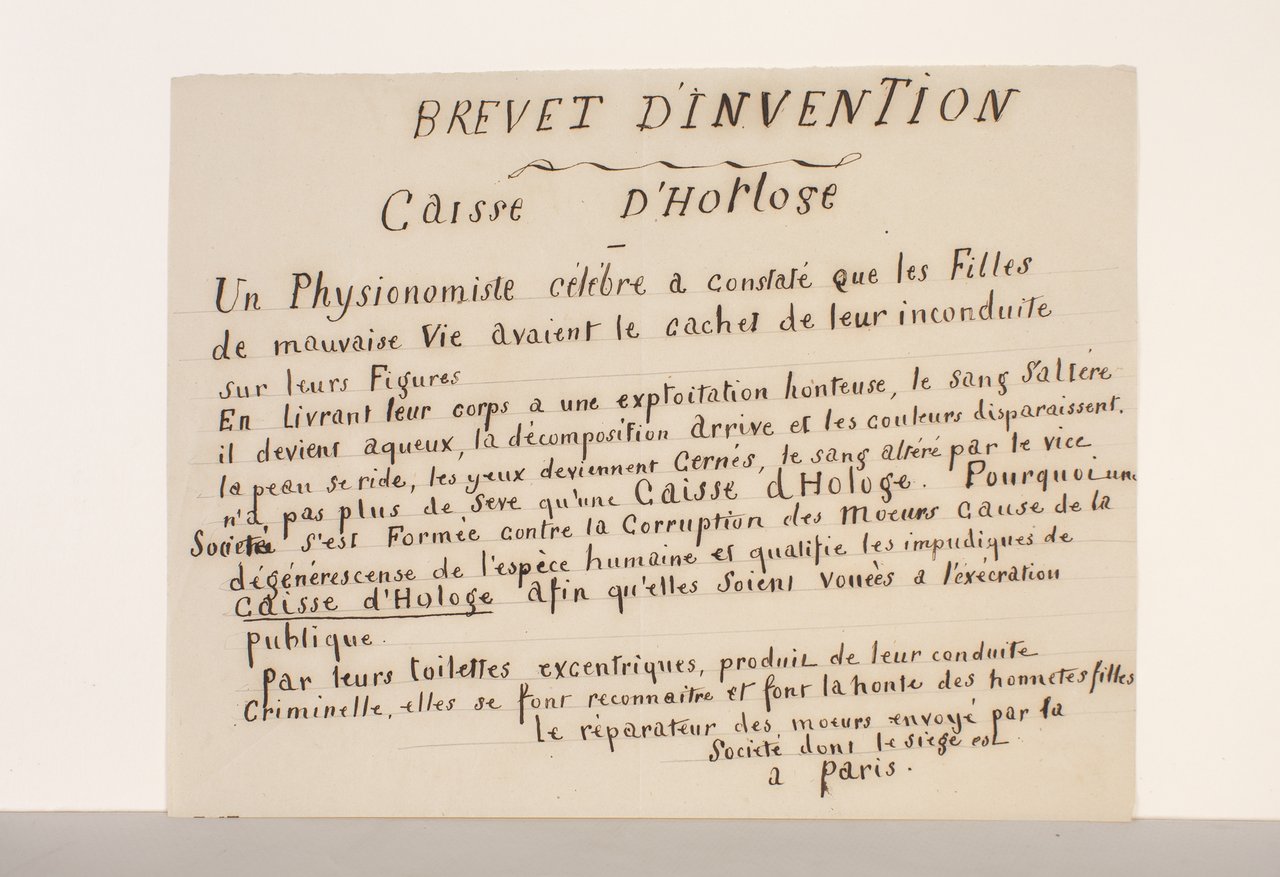 BREVET D'INVENTION
Caisse D'Horloge
Un Physionomiste célébre a constaté que les Filles
de mauvaise Vie avaient le cachet de leur inconduite
sur leurs Figures
En Livrant leur corps a une exploitation honteuse, le sang s'altére
il devient aqueux, la décomposition arrive et les couleurs disparaissent.
la peau se ride, les yeux deviennent Cernés, le sang altéré par le vice
n'a pas plus de Seve qu'une Caisse d'Hologe. Pourquoi une
Societé s'est Formée contre la Corruption des Moeurs Cause de la
dégénérescense de l'espèce humaine et qualifie les impudiques de
Caisse d'Hologe afin qu'elles Soient vouèes a l'éxécration
publique.
Par leurs toilettes excentriques, produit de leur conduite
Criminelle, elles se font reconnaitre et font la honte des honnetes filles
Le réparateur des moeurs envoyé par la
Société dont le siege est
a Paris.